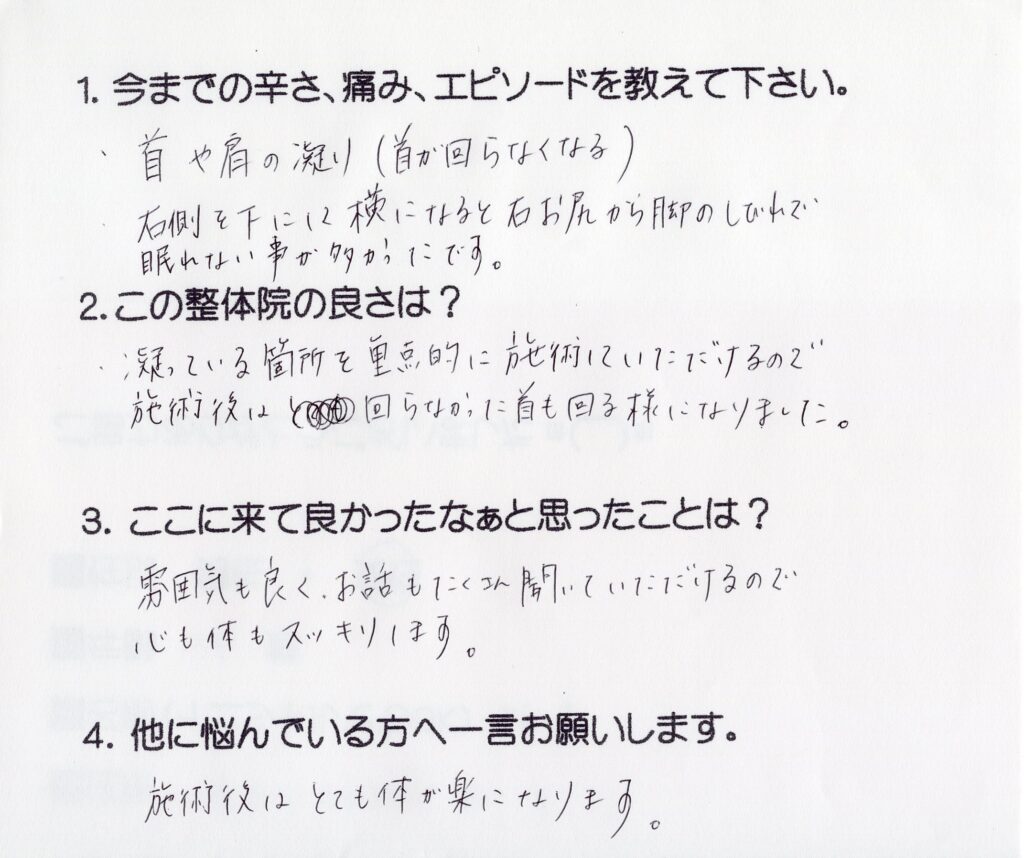 1. 今までの辛さ、痛み、エピソードを教えて下さい。
・ 首や肩の凝り(首が回らなくなる)
・ 右側を下にして横になると右お尻から脚のしびれで
眠れない事が多かったです。
2. この整体院の良さは？
・凝っている箇所を重点的に施術していただけるので
施術後は 回らなかった首も回る様になりました。
3. ここに来て良かったなぁと思ったことは？
雰囲気も良く、お話もたくさん聞いていただけるので
心も体もスッキリします。
4. 他に悩んでいる方へ一言お願いします。
施術後はとても体が楽になります。